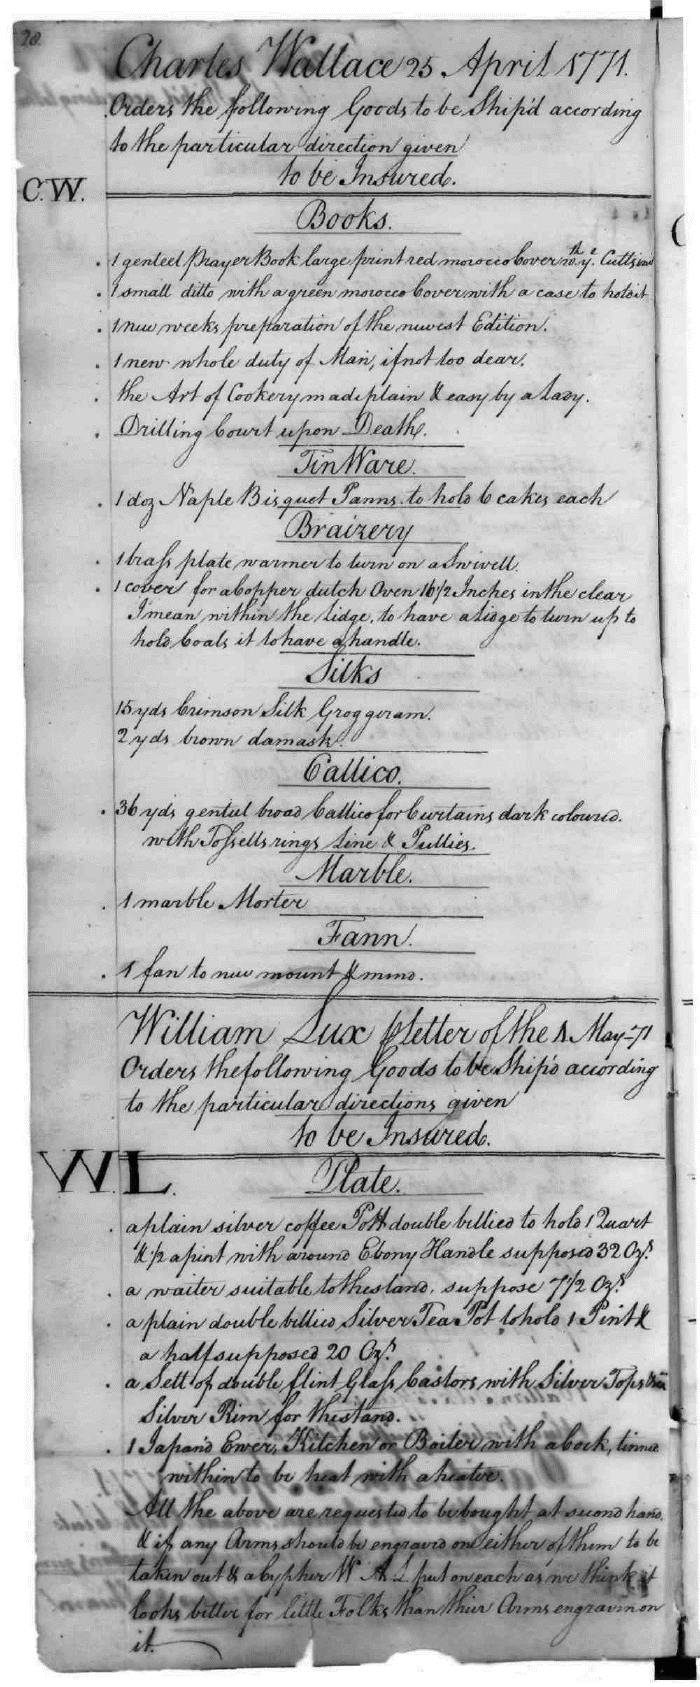 28.
Charles Wallace 25 April 1771.
Orders the following Goods to be Ship'd according
to the particular direction given
to be Insured.
C.W.
Books.
1 genteel Prayer Book large print red morocco Cover
1 small ditto with a green morocco Cover with a case to hold it
1 new weeks preparation of the newest Edition.
1 new whole duty of Man, if not too dear.
the Art of Cookery made plain & easy by a Lady.
Drilling Court upon Death.
Tin Ware.
1 doz Naple Bisquet Panns to hold 6 cakes each
Braizery
1 brass plate warmer to turn on a Swivell.
1 cover for a Copper dutch Oven 16 1/2 Inches in the clear
I mean within the Lidge, to have a Lidge to turn up to
hold Coals it to have a handle.
Silks
15 yds Crimson Silk Groggeram.
2 yds brown damask.
Callico.
36 yds genteel broad Callico for Curtains dark coloured.
with Tossells rings Line & Pullies.
Marble.
1 marble Morter
Fann.
1 fan to new mount & mend.
William Lux p letter of the 4 May 71
Orders the following Goods to be Ship'd according
to the particular directions given
to be Insured.
W.L.
Plate.
a plain silver coffee Pott double bellied to hold 1 Quart
& 1/2 a pint with a round Ebony Handle supposed 32 Ozs.
a waiter suitable to the stand, suppose 7 1/2 Ozs.
a plain double bellied Silver Tea Pot to hold 1 Pint &
a half supposed 20 Ozs.
a Sett of double flint Glass Castors with Silver Tops &
Silver Rim for the stand.
1 Japan'd Ewer, Kitchen or Boiler with a Cock, tinned
within to be heat with a heater.
All the above are requested to be bought at second hand,
& if any Arms should be engraved on either of them to be
taken out & a Cypher W A L put on each as we think it
looks better for little Folks than their Arms engraven on
it.